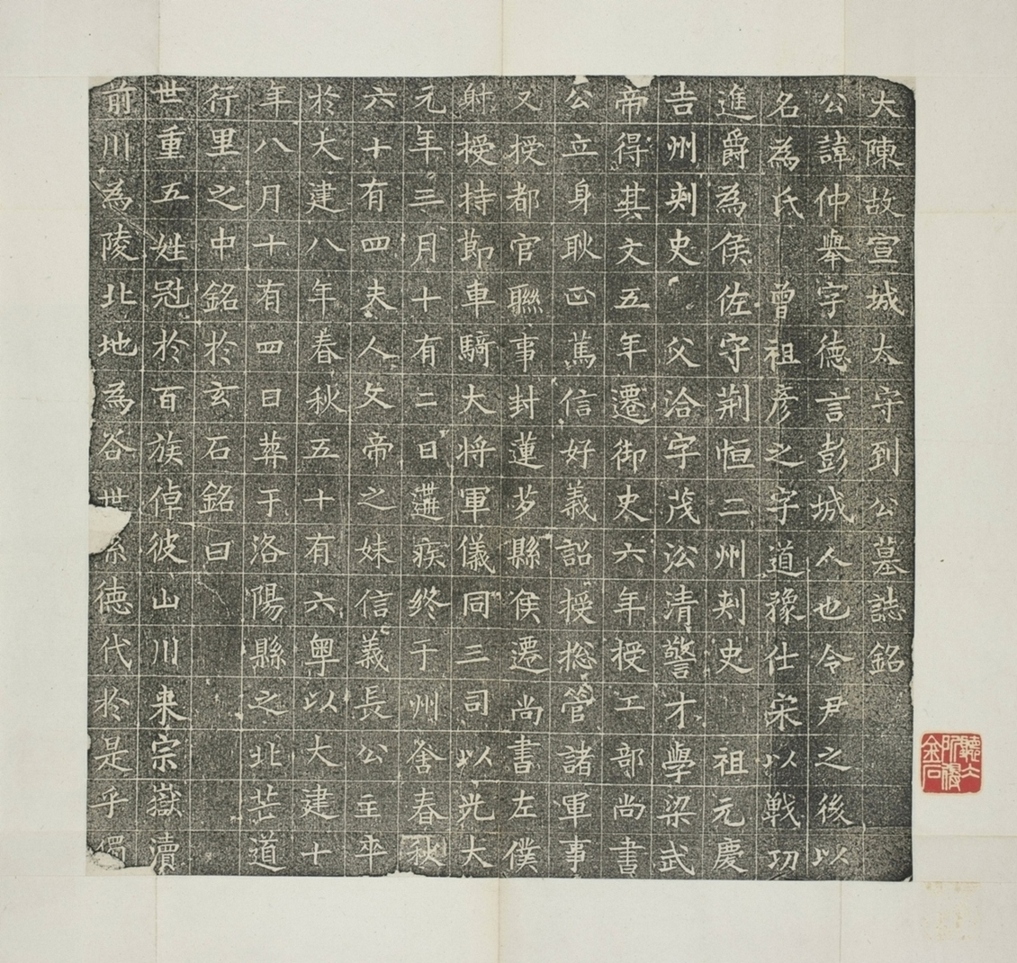 大陳故宣城太守到公墓誌銘
公諱仲舉字德言彭城人也令尹之後以
名為氏 曾祖彦之字道豫仕宋以戰功
進爵為侯佐守荆恒二州刾史 祖元慶
吉州刾史 父洽字茂㳂清警才學梁武
帝得其文五年遷御史六年授工部尚書
公立身耿正篤信好義詔授捴管諸軍事
又授都官聯事封蓮芗縣侯遷尚書左僕
射授持節車騎大将軍儀同三司以光大
元年三月十有二日遘疾终于州舍春秋
六十有四夫人文帝之妹信義長公主卒
於大建八年春秋五十有六粤以大建十
年八月十有四日葬于洛陽縣之北芒道
行里之中銘於玄石銘曰
世重五姓冠於百族倬彼山川来宗嶽瀆
前川為陵北地為谷世系德代於是乎獨
聽
所得
金石